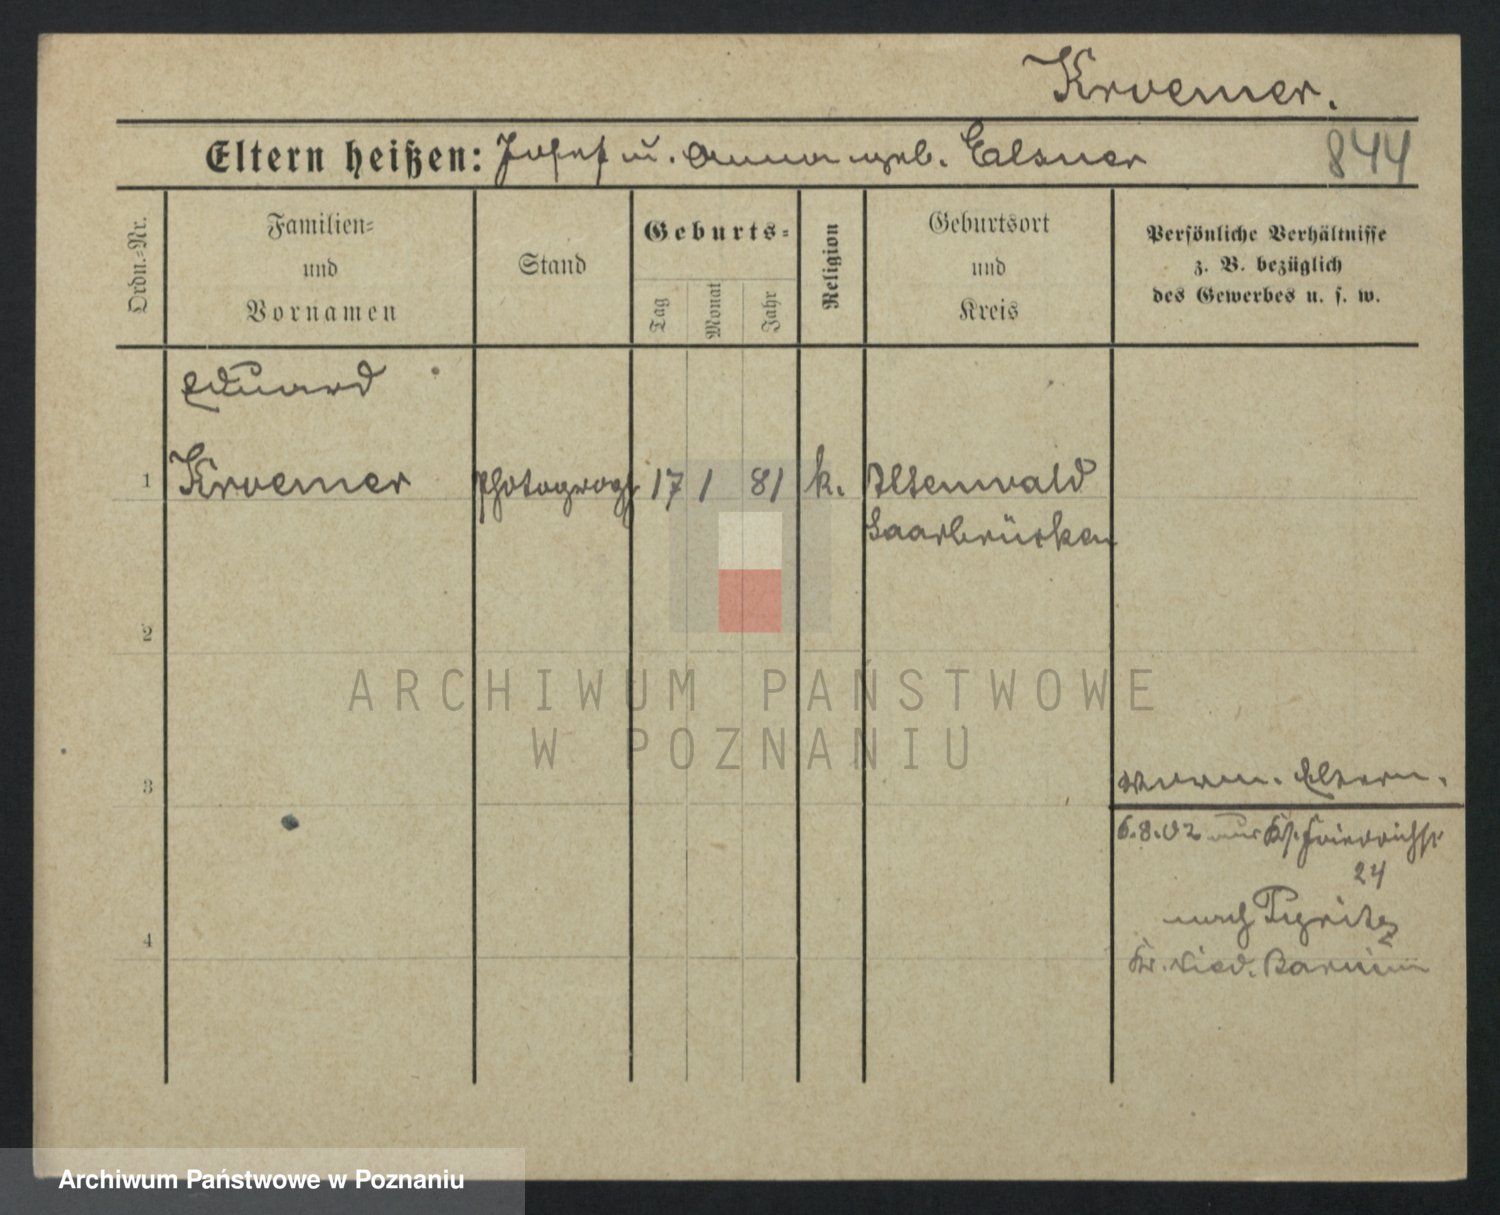 Kroemer.
Eltern heißen: Josef u. Anna geb. Elsner 844
Ordn.-Nr.
Familien-
und
Vornamen
Stand
Geburts-
Tag
Monat
Jahr
Religion
Geburtsort
und
Kreis
Persönliche Verhältnisse
z. B. bezüglich
des Gewerbes u. s. w.
Eduard
1 Kroemer Photograph 17 1 81 k. Altenwald
Saarbrücken
2
ARCHIWUM PAŃSTWOWE
W POZNANIU
3 Eltern.
6.8.02 aus Friedrichstr
24
nach Pyritz
4 Kr. Nied. Barnim
Archiwum Państwowe w Poznaniu